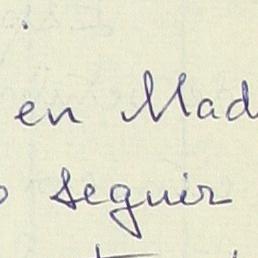 en Mad
seguir